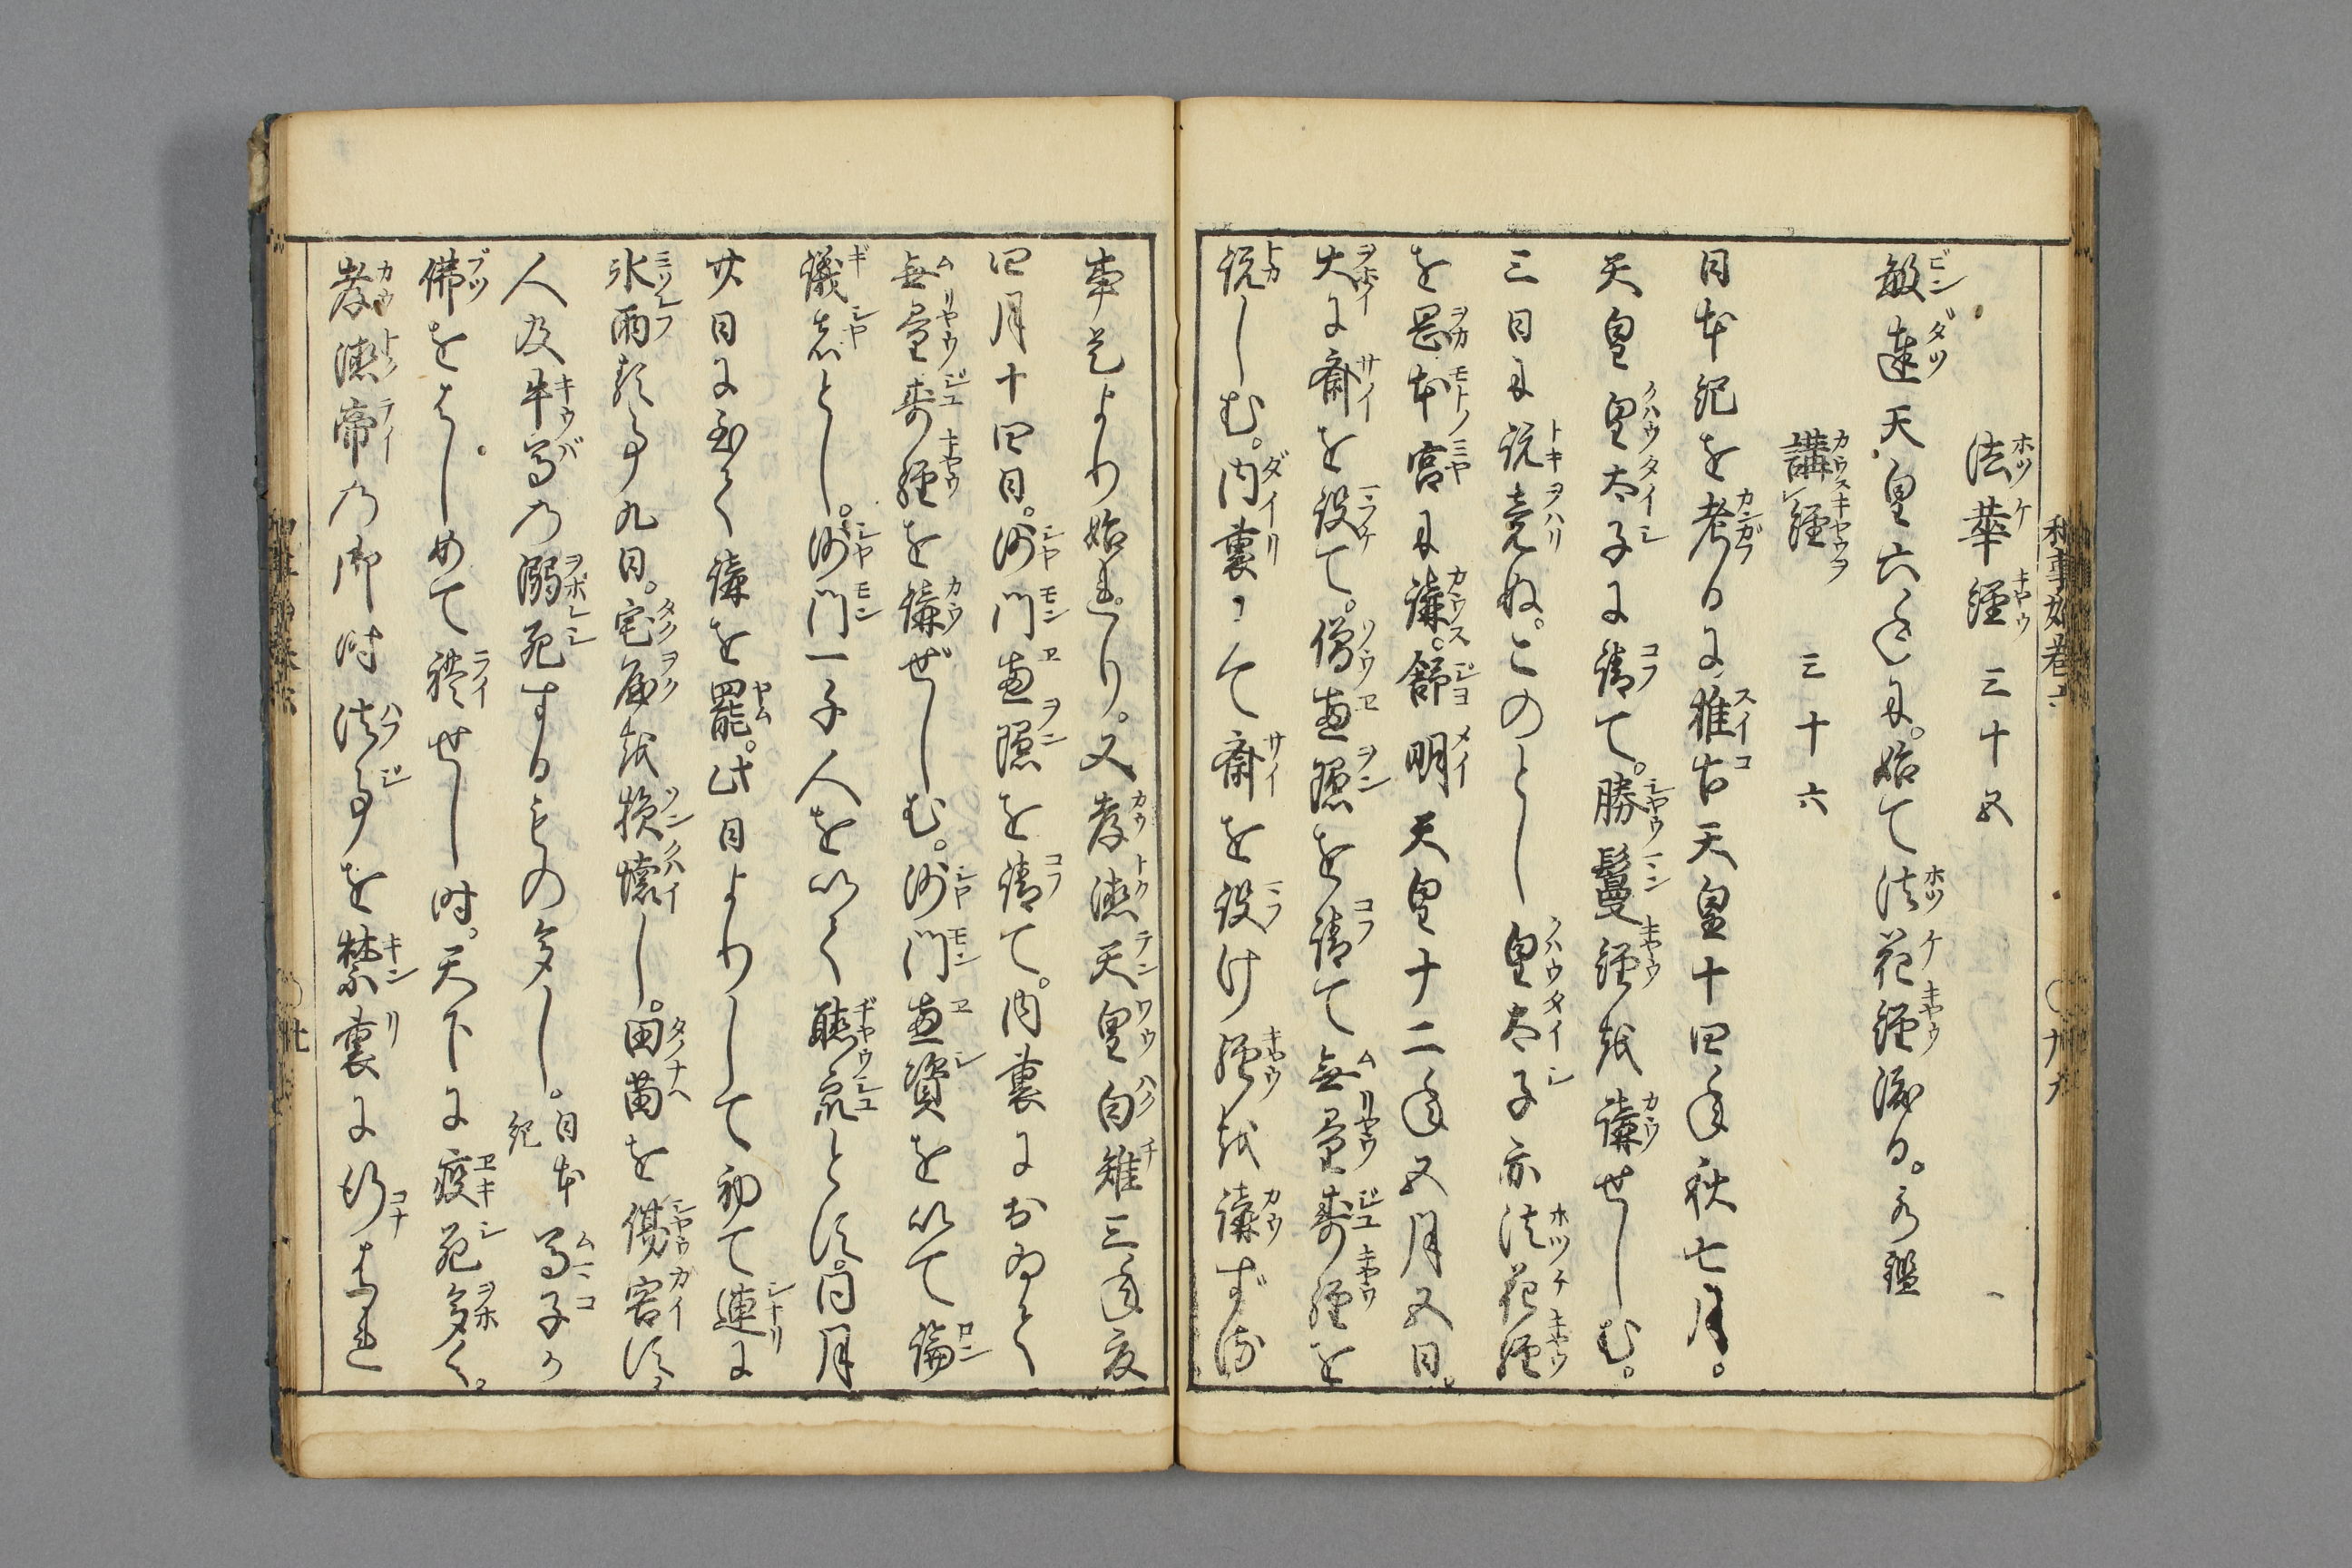 法華経 三十五
敏達天皇六年に。始て法花経渡る。水鑑
講経 三十六
日本紀を考るに推古天皇十四年秋七月。
天皇皇太子に請て。勝鬘経を講せしむ。
三日に説竟ぬ。このとし皇太子亦法花経
を岡本宮に講。舒明天皇十二年五月五日。
大に斎を設て。僧恵隠を請て無量寿経を
説しむ。内裏にて斎を設け経を講ずる
事是より始れり。又孝徳天皇白雉三年夏
四月十四日。沙門恵隠を請て。内裏におゐて
無量寿経を講ぜしむ。沙門恵資を以て論
議者とし。沙門一千人を以て聴衆とす。同月
廿日に至て講を罷。此日よりして初て連に
氷雨頻事九日。宅屋を損壊し。田苗を傷害す。
人及牛馬の溺死するもの多し。日本紀 馬子か
佛をはしめて礼せし時。天下に疫死多く。
孝徳帝の御時法事を禁裏に行はれ
和事始巻六
〇十九
〇廿